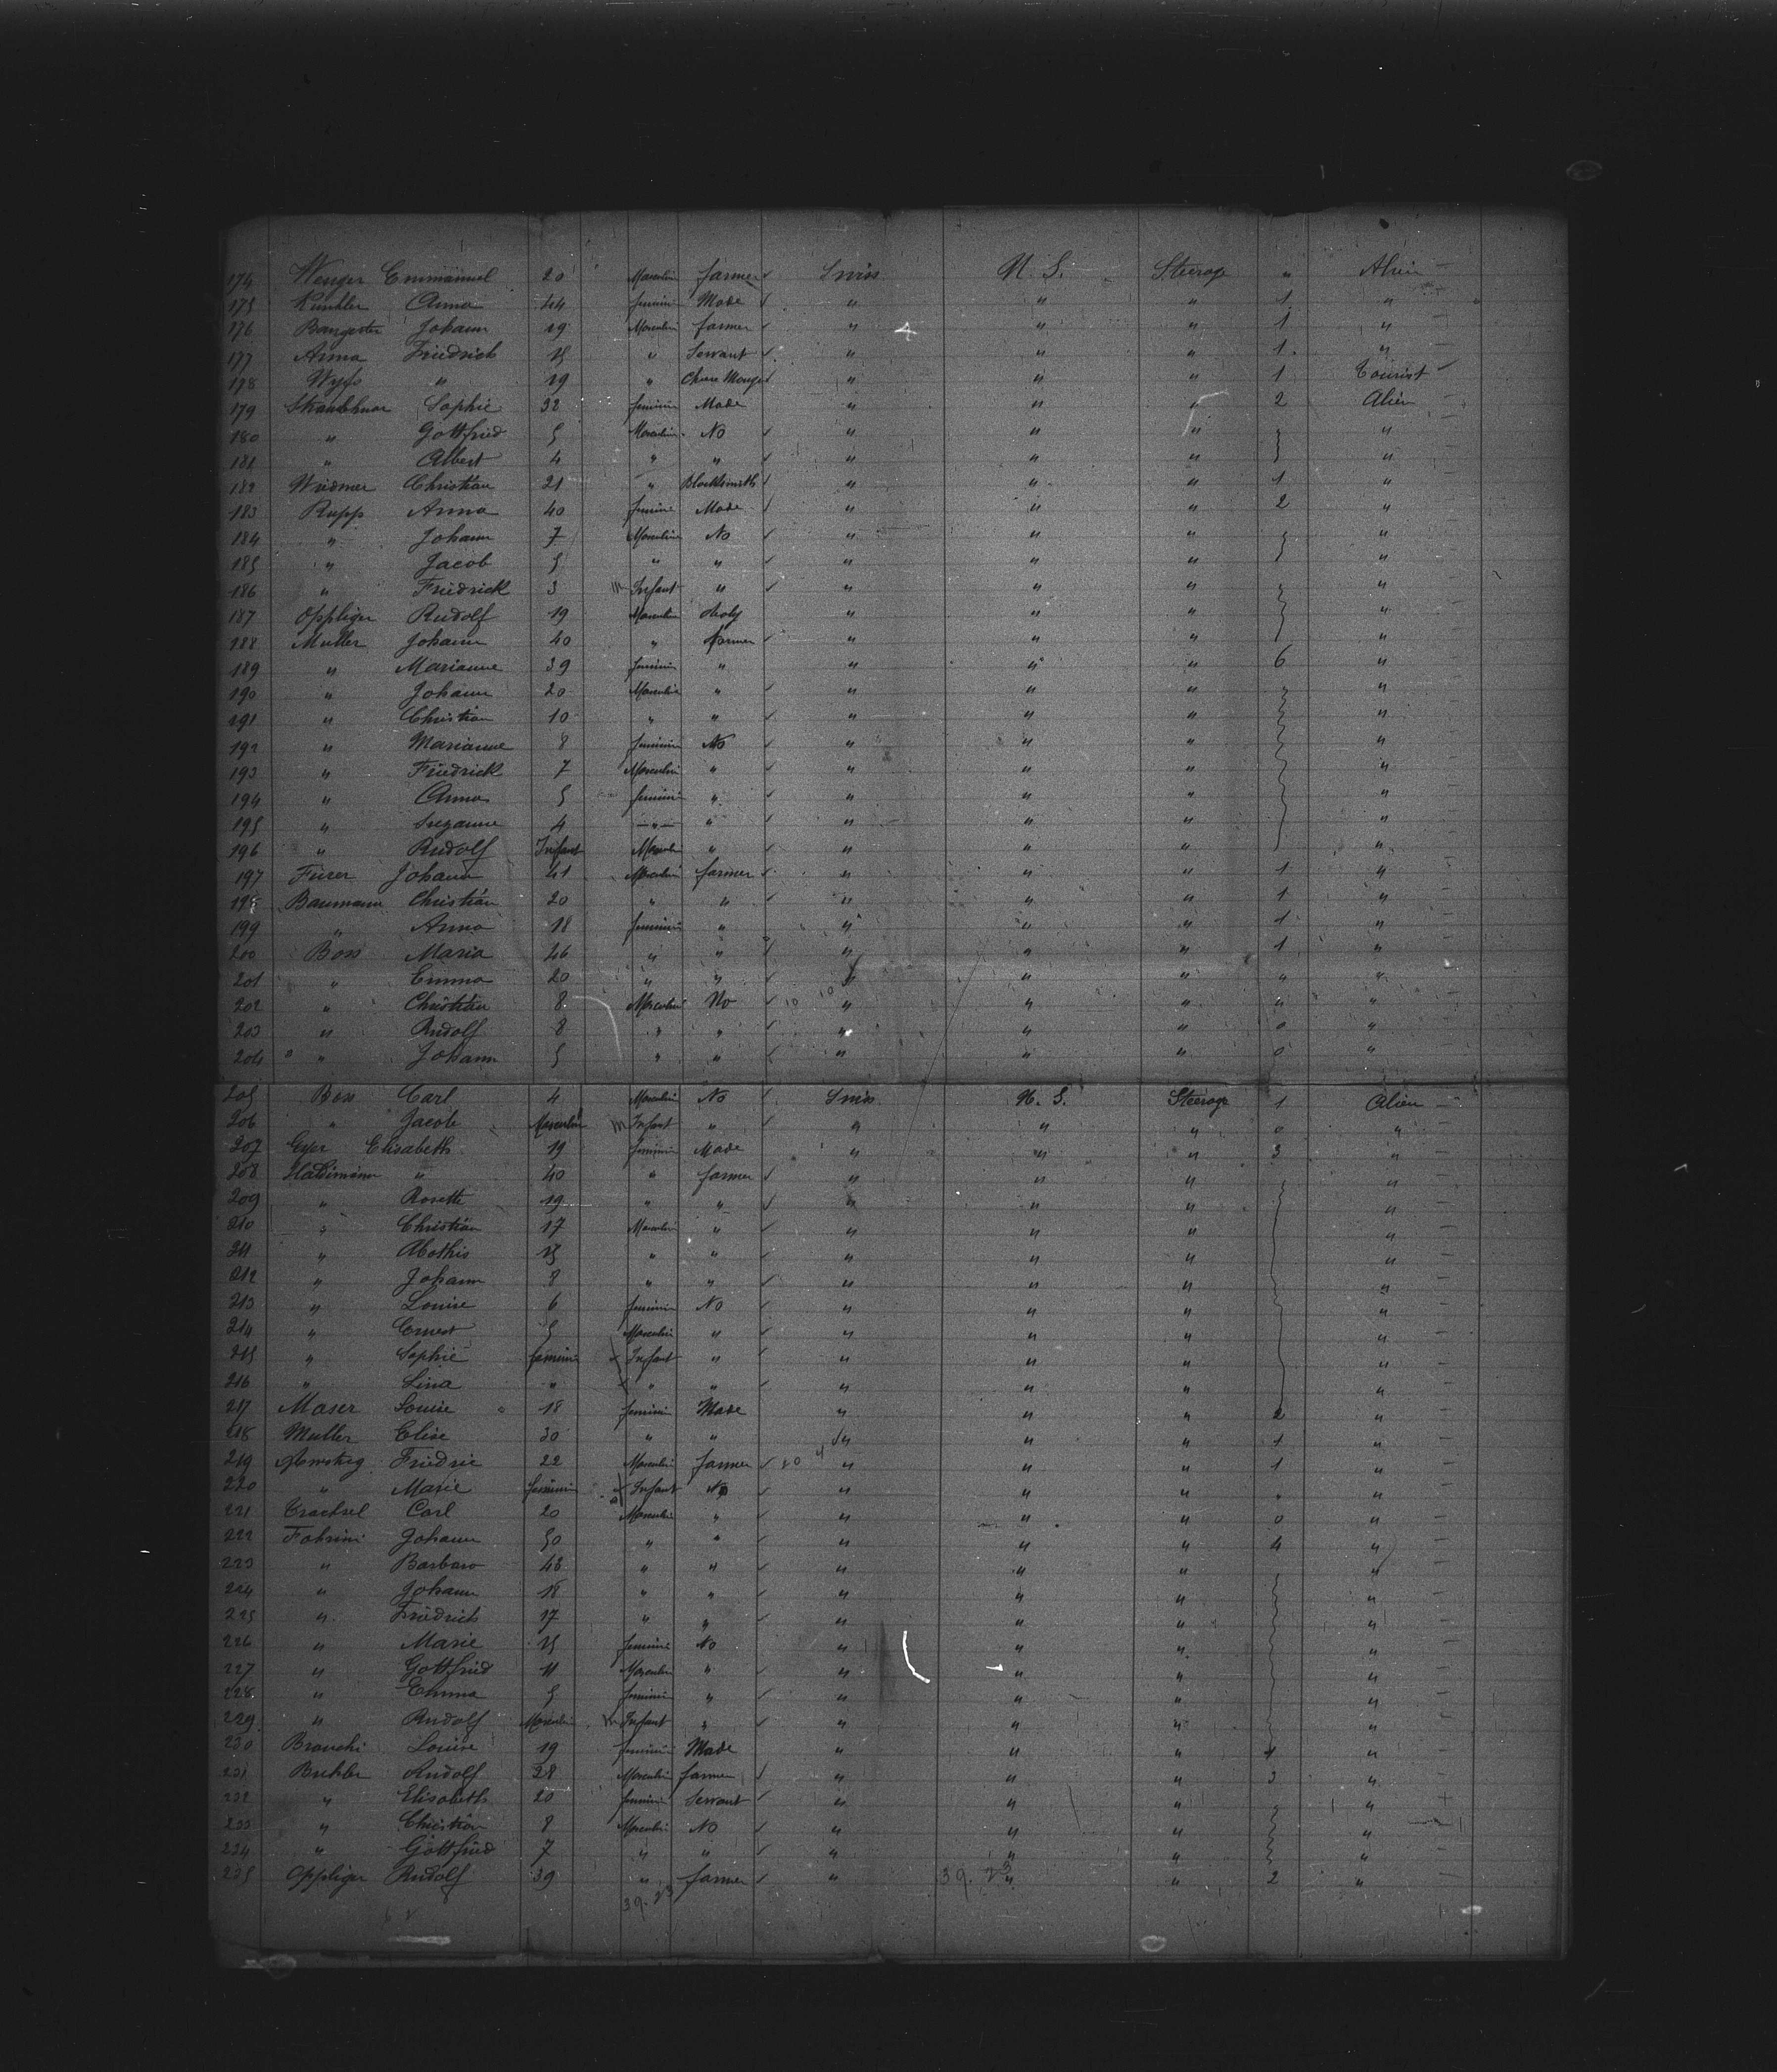 174 Wenger Emmanuel 20 Masculin farmer Swiss U. S. Steerage " Alien
175 Kunkler Anna 44 feminin Made " " " 1 " "
176 Bangerter Johann 19 Masculin farmer " " " 1 "
177 Anna Friedrich 15 " Servant " " " 1 "
178 Wyss " 19 " " " " 1 Tourist
179 Sophie 32 feminin Made " " " 2 Alien
180 " Gottfried 5 Masculin No " " " "
181 " Albert 4 " " " " " "
182 Widmer Christian 21 " Blacksmith " " " 1 "
183 Rupp Anna 40 feminin Made " " " 2 "
184 " Johann 7 Masculin No " " " "
185 " Jacob 5 " " " " " "
186 " Friedrick 3 m Infant " " " " "
187 Oppliger Rudolf 19 Masculin " " " "
188 Muller Johann 40 " farmer " " " "
189 " Marianne 39 feminin " " " " 6 "
190 " Johann 20 Masculin " " " " "
191 " Christian 10 " " " " " "
192 " Marianne 8 feminin No " " " "
193 " Friedrick 7 Masculin " " " " "
194 " Anna 5 feminin " " " " "
195 " Suzanne 4 " " " " " "
196 " Rudolf Infant Mascul " " " " "
197 Furer Johann 41 Masculin farmer " " " 1 "
198 Baumann Christian 20 " " " " " 1 "
199 " Anna 18 feminin " " " " 1 "
200 Boss Maria 46 " " " " " 1 "
201 " Emma 20 " " " " " " "
202 " Christian 8 Masculin No 10 10 " " " " "
203 " Rudolf 8 " " " " " 0 "
204 " " Johann 5 " " " " " 0 "
205 Boss Carl 4 Masculin No Swiss U. S. Steerage 1 Alien
206 " Jacob Masculin m Infant " " " " 0 "
207 Gyer Elisabeth 19 feminin Made " " " 3 "
208 Haldimann " 40 " farmer " " " "
209 " Rosette 19 " " " " " "
210 " Christian 17 Masculin " " " " "
211 " 15 " " " " " "
212 " Johann 8 " " " " " "
213 " Louise 6 feminin No " " " "
214 " Ernest 5 Masculin " " " " "
215 " Sophie feminin Infant " " " " "
216 " Lina " " " " " " "
217 Maser Louise 18 feminin Made " " " 2 "
218 Muller Elise 30 " " " " " 1 "
219 Friedric 22 Masculin farmer " " " 1 "
220 " Marie feminin Infant No " " " " "
221 Trachsel Carl 20 Masculin " " " " 0 "
222 Fahrini Johann 50 " " " " " 4 "
223 " Barbara 43 " " " " " "
224 " Johann 18 " " " " " "
225 " Friedrich 17 " " " " " "
226 " Marie 15 feminine No " " " "
227 " Gottfried 11 Masculin " " " " "
228 " Emma 5 feminin " " " " "
229 " Rudolf Masculin m Infant " " " " "
230 Branchi Louise 19 feminin Made " " " 1 "
231 Buhler Rudolf 28 Masculin farmer " " " 3 "
232 " Elisabeth 20 feminin Servant " " " "
233 " Christian 8 Masculin No " " " "
234 " Gottfried 7 " " " " " "
235 Oppliger Rudolf 39 " farmer " " " 2 "
39.23 39.23